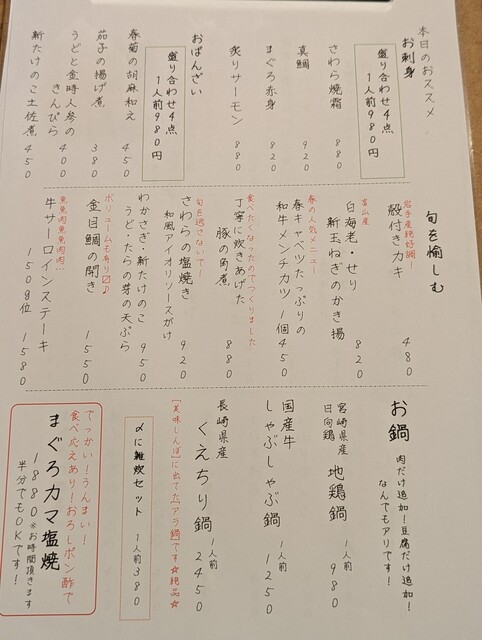 本日のおススメ
お刺身
盛り合わせ4点
1人前980円
さわら焼霜
880
真鯛
920
まぐろ赤身
820
炙りサーモン
880
おばんざい
盛り合わせ4点
1人前980円
春菊の胡麻和え
450
茄子の揚げ煮
380
うどと金時人参の
きんぴら
400
新たけのこ土佐煮
450
旬を愉しむ
岩手産絶好調!
殻付きカキ
480
富山産
白海老・せり
新玉ねぎのかき揚
820
春の人気メニュー
春キャベツたっぷりの
和牛メンチカツ 1個
450
食べたくなったのでつくりました
丁寧に炊きあげた
豚の角煮
880
旬を逃さないで!
さわらの塩焼き
和風アイオリソースがけ
920
わかさぎ・新たけのこ
うど・たらの芽の天ぷら
950
ボリュームも有り〼♪
金目鯛の開き
1550
魚魚肉魚魚肉肉…
牛サーロインステーキ
150g位 1580
お鍋
肉だけ追加!豆腐だけ追加!
なんでもアリです!
宮崎県産
日向鶏
地鶏鍋
1人前
980
国産牛
しゃぶしゃぶ鍋
1人前
1250
長崎県産
くえちり鍋
1人前
2450
[美味しんぼ]に出てた[アラ鍋]です☆絶品☆
〆に雑炊セット 1人前380
でっかい!うんまい!
食べ応えあり!おろしポン酢で
まぐろカマ塩焼
1880※お時間頂きます
半分でもOKです!